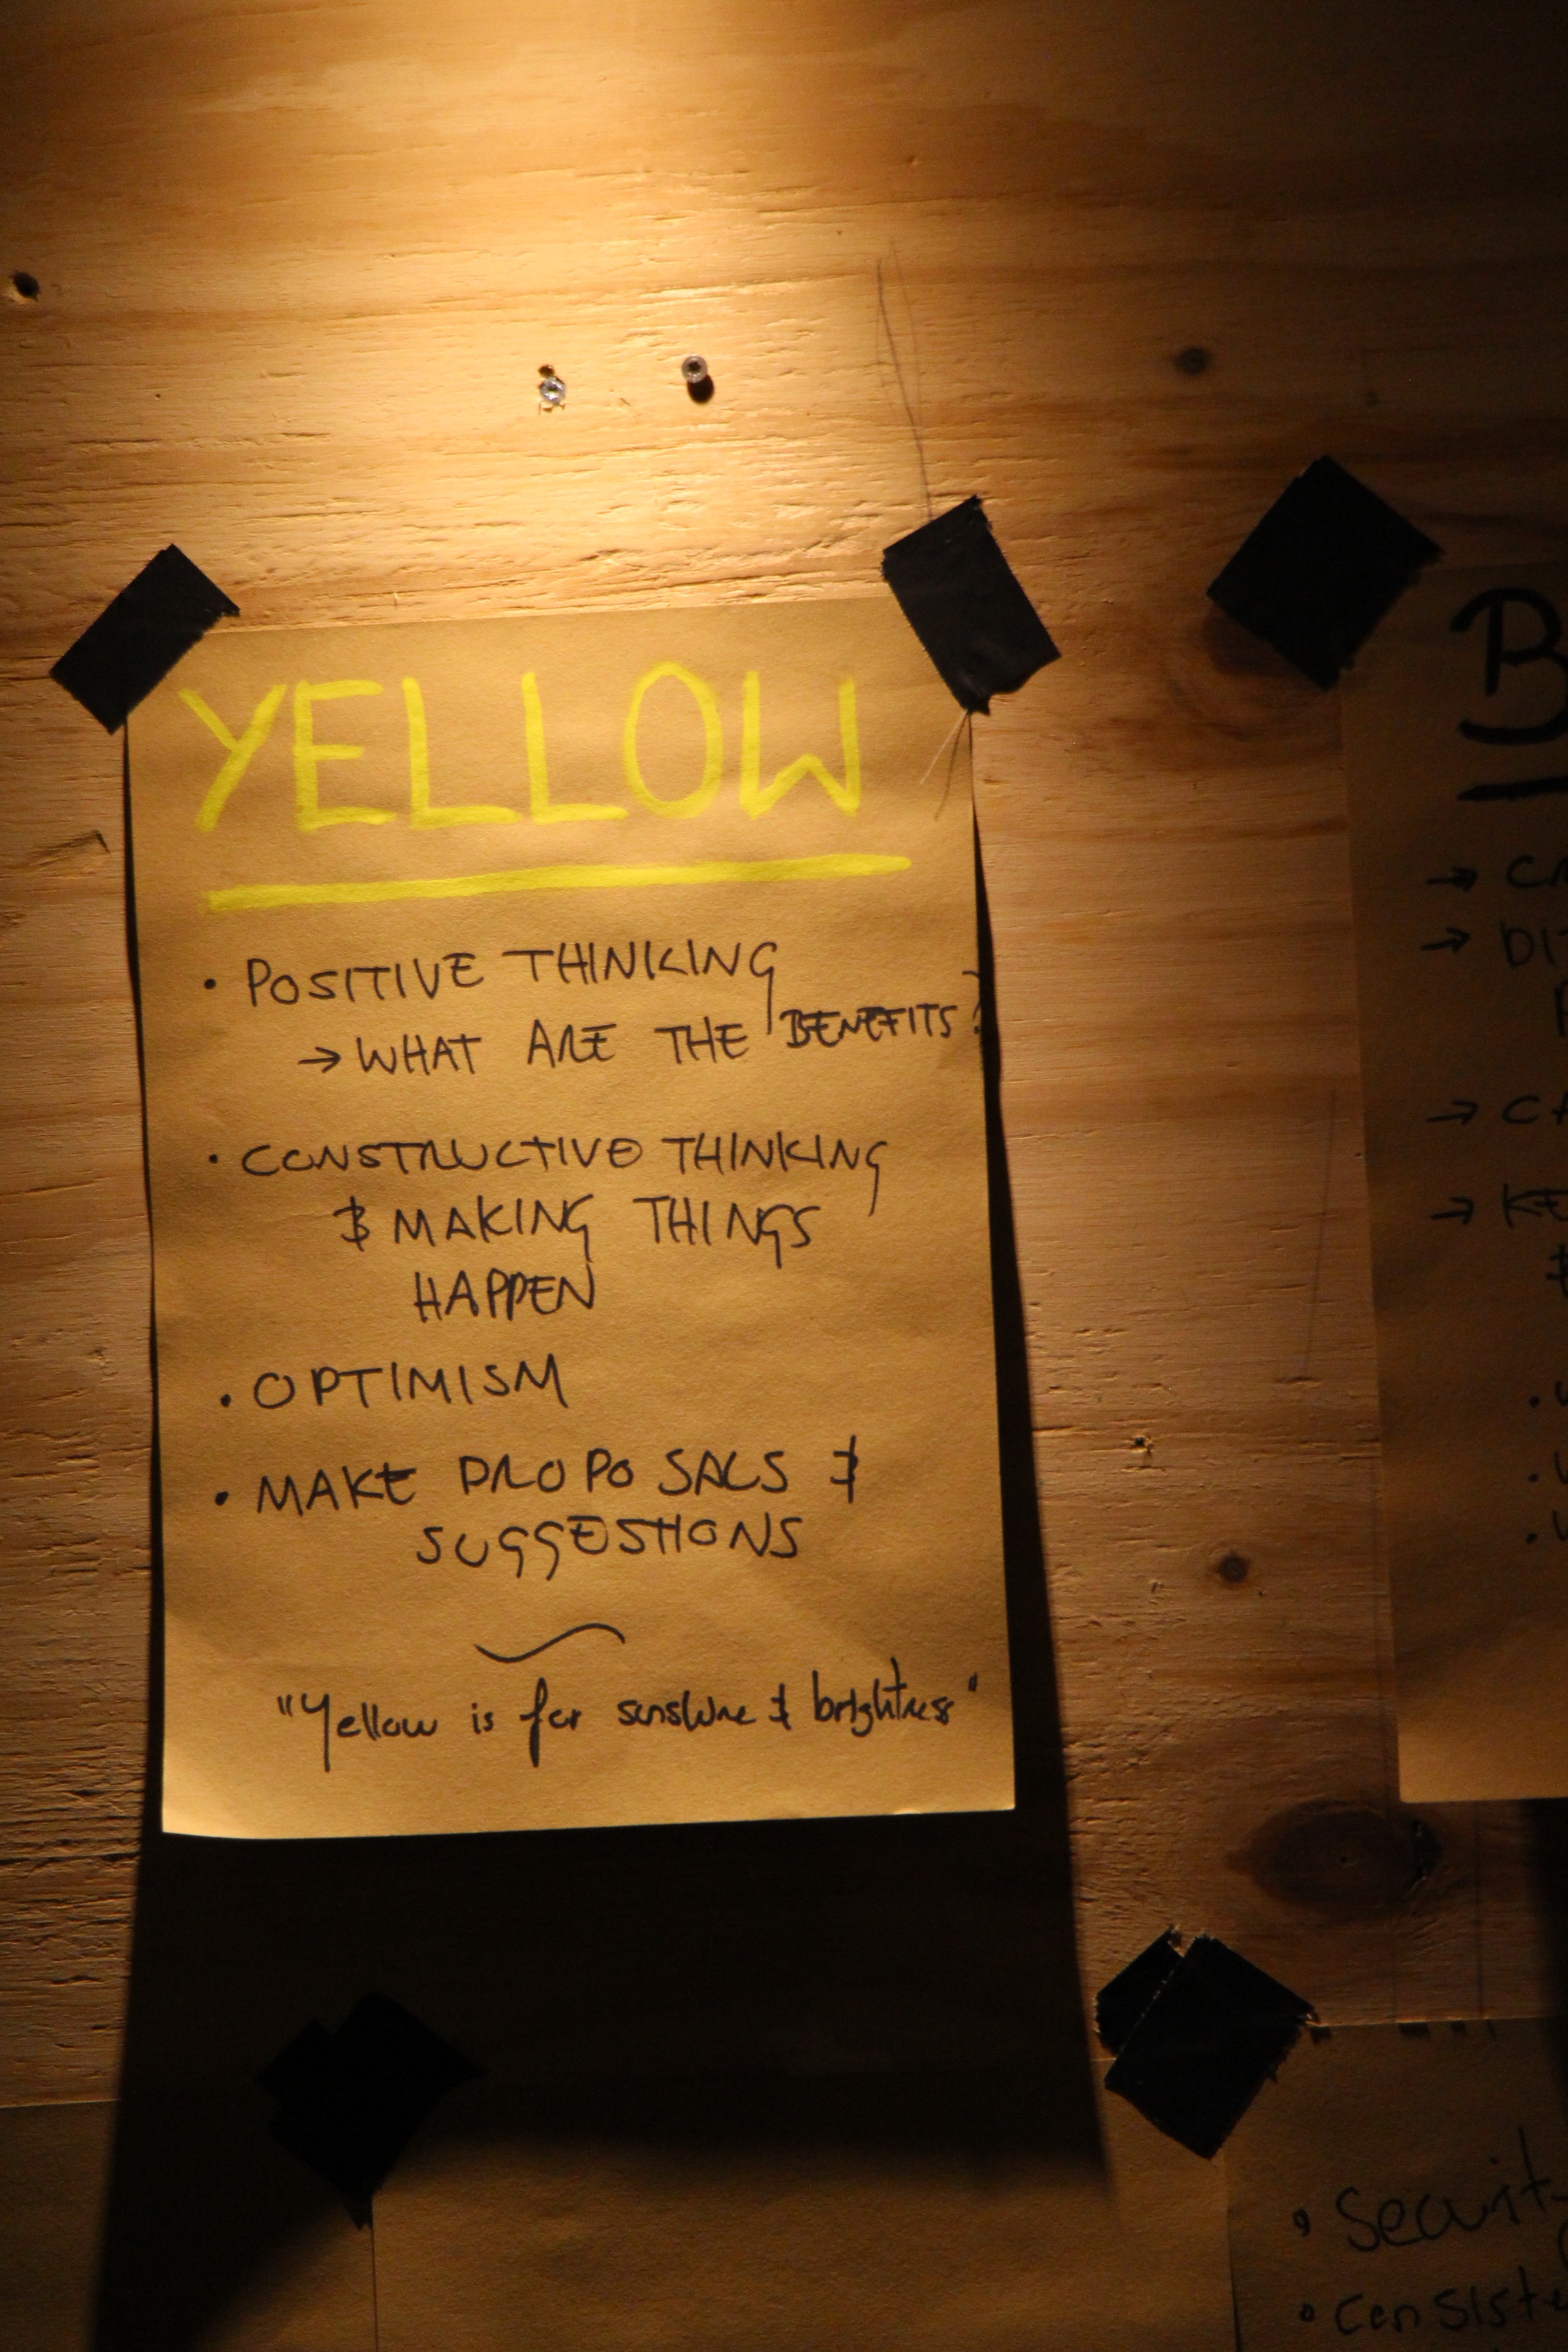 YELLOW
• POSITIVE THINKING
→ WHAT ARE THE BENEFITS?
• CONSTRUCTIVE THINKING
& MAKING THINGS
HAPPEN
• OPTIMISM
• MAKE PROPOSALS &
SUGGESTIONS
"Yellow is for sunshine & brightness"
B
→
→
→
→
• Securit
• Consiste